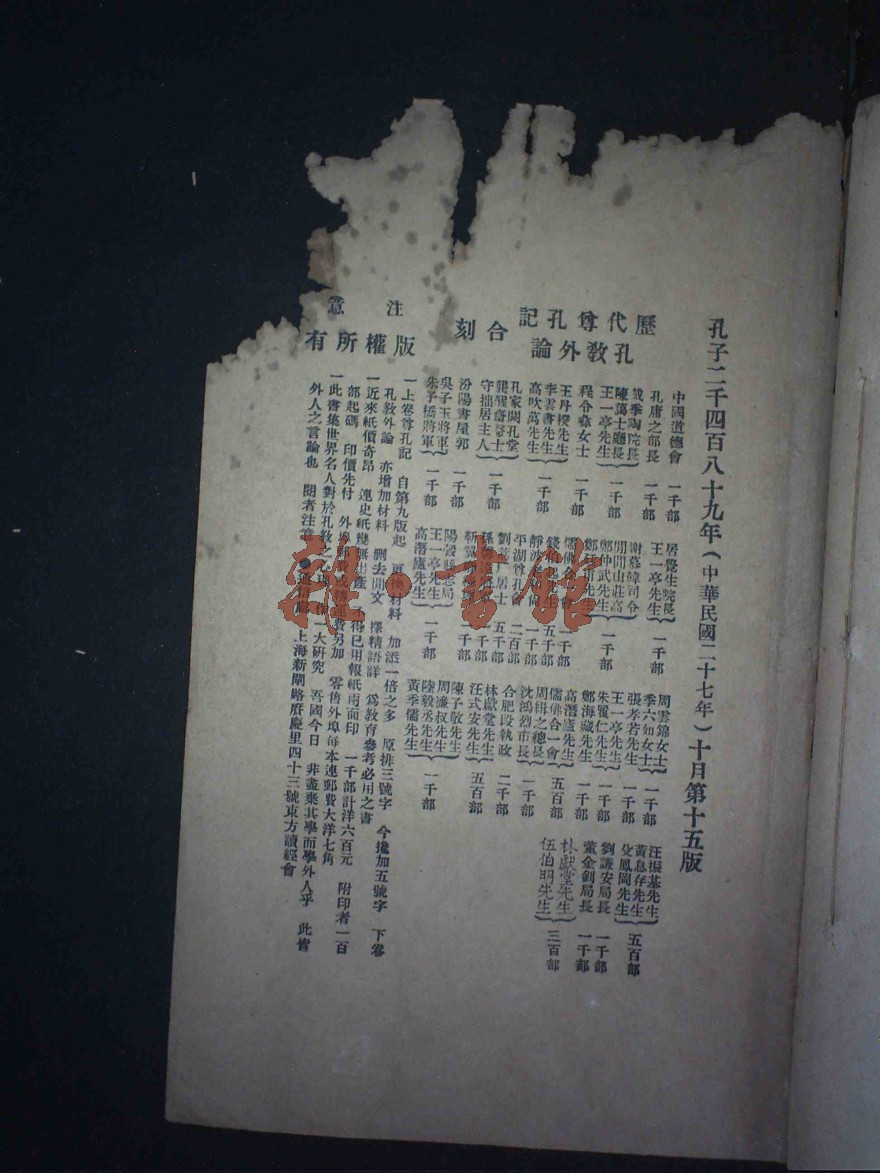 孔子二千四百八十九年(中華民國二十七年)十月第十五版
歷代尊孔記
孔教外論
合刻
中國道德會 一千部
孔庸之部長 一千部
戴季陶院長
陳藹士廳長
王一亭先生 一千部
程令彝女士 一千部
王丹揆先生
李雲書先生
高吹萬先生 一千部
孔家闕孔堂
守拙居主人 一千部
汾陽書屋郭 一千部
吳子玉將軍
朱子橋將軍 一千部
居覺生院長
王一亭先生 一千部
謝蘅窗司令
閒閒山莊高
鄭仲武先生 一千部
儒佛合一會 一千部
五千部
一千部
平湖尊孔會 二百部
劉 居士 五千部
一千部
一千部
陽穀縣志局
王一亭先生
高潛廬先生 一千部
周雲錦女士
季六如女士 一千部
張孝若先生 一千部
王一亭先生
朱覺仁先生 一千部
鄭海藏先生 一千部
高潛廬先生
儒佛合一會 五百部
周緝之總長
沈鴻烈市長 一千部
合肥段執政 二千部
林獻堂先生
汪式安先生 五百部
陳子敬先生
周濂叔先生
陸毅丞先生
黃季儒先生 一千部
汪振基先生
黃息存先生
殳鳳岡先生 五百部
劉謙安局長 一千部
董金釗局長 一千部
林獻堂先生
伍伯明先生 三百部
版權所有
注意
一上卷尊孔記 自第九版起 更換材料 加添一倍之多 原排三號字 今攙加五號字 下卷
孔教外論 亦增加材料 刪去閒文 擇精語詳 爲教育參考必用之書
一近來紙價奇昂 連史紙幾無出產 不得已用報紙兩面印 一千部計洋六百元 附印者一百
部起碼 印價先付 外埠郵費或轉運費另加 零售外埠每本連郵費大洋七角
一此書集世界名人對於孔教之 一大研究 吾國今日 非盡棄其學而學外人乎 此皆
外人之言論也 閱者注意●通信處 上海新閘路賡慶里四十三號東方讀經會
雜·書館